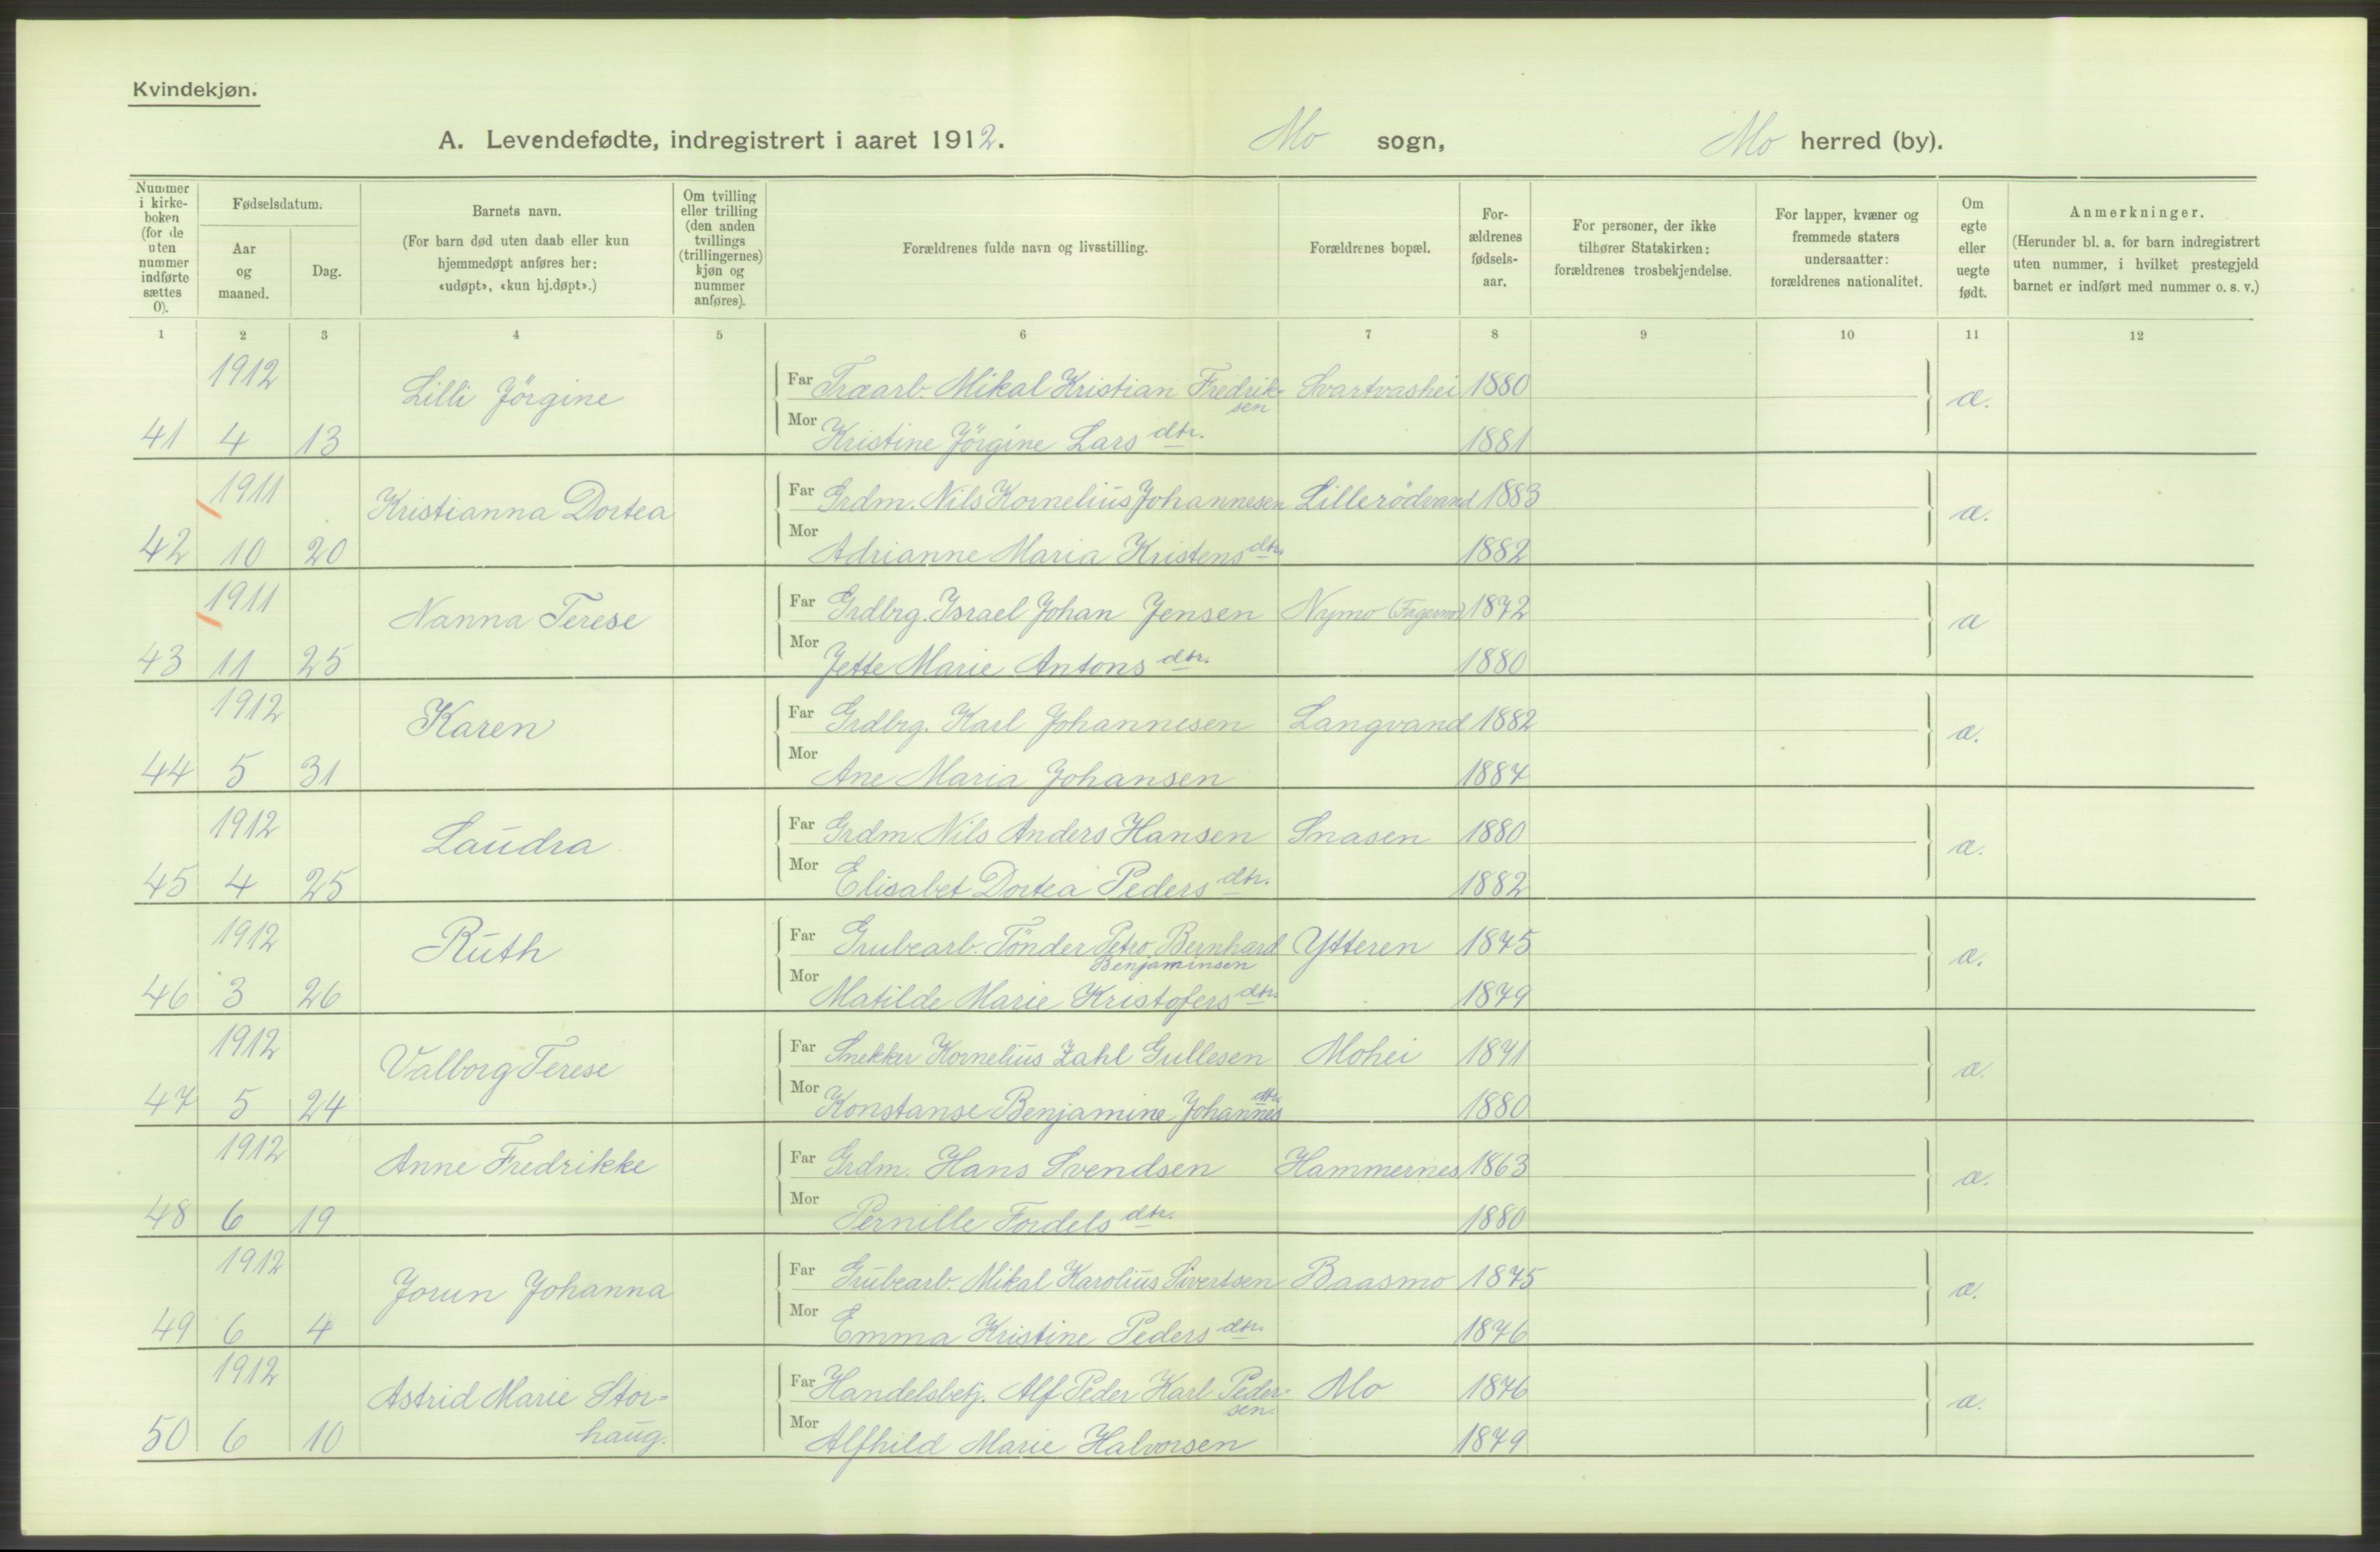 Kvindekjøn.
A. Levendefødte, indregistrert i aaret 1912. Mo sogn, Mo herred (by).
Nummer i kirke-boken (for de uten nummer indførte sættes 0). Fødselsdatum. Aar og maaned. Dag. Barnets navn. (For barn død uten daab eller kun hjemmedøpt anføres her: «udøpt», «kun hj.døpt».) Om tvilling eller trilling (den anden tvillings (trillingernes) kjøn og nummer anføres). Forældrenes fulde navn og livsstilling. Forældrenes bopæl. For-ældrenes fødsels-aar. For personer, der ikke tilhører Statskirken: forældrenes trosbekjendelse. For lapper, kvæner og fremmede staters undersaatter: forældrenes nationalitet. Om egte eller uegte født. Anmerkninger. (Herunder bl. a. for barn indregistrert uten nummer, i hvilket prestegjeld barnet er indført med nummer o. s. v.)
1 2 3 4 5 6 7 8 9 10 11 12
1912 Lilli Jörgine Far Træarb. Mikal Kristian Fredrik- Svartvashei 1880 æ.
sen
41 4 13 Mor Kristine Jörgine Lars dtr. 1881
1911 Kristianna Dortea Far Grdm. Nils Kornelius Johannesen Lillerödvand 1883 æ.
42 10 20 Mor Adrianne Maria Kristens dtr. 1882
1911 Nanna Terese Far Grdbrg. Israel Johan Jensen Nymo (Fagermo) 1872 æ
43 11 25 Mor Jette Marie Antons dtr. 1880
1912 Karen Far Grdbrg. Karl Johannesen Langvand 1882 æ.
44 5 31 Mor Ane Maria Johansen 1887
1912 Laudra Far Grdm. Nils Anders Hansen Snasen 1880 æ.
45 4 25 Mor Elisabet Dortea Peders dtr. 1882
1912 Ruth Far Grubearb. Tönder Petro Bernhard Ytteren 1875 æ.
Benjaminsen
46 3 26 Mor Matilde Marie Kristofers dtr. 1879
1912 Valborg Terese Far Snekker Kornelius Zahl Gullesen Mohei 1871 æ.
47 5 24 Mor Konstanse Benjamine Johannes dtr. 1880
1912 Anne Fredrikke Far Grdm. Hans Svendsen Hammernes 1863 æ.
48 6 19 Mor Pernille Fordels dtr. 1880
1912 Jorun Johanna Far Grubearb. Mikal Karolius Sivertsen Baasmo 1875 æ.
49 6 4 Mor Emma Kristine Peders dtr. 1876
1912 Astrid Marie Stor- Far Handelsbetj. Alf Peder Karl Peder- Mo 1876 æ.
sen.
50 6 10 haug. Mor Alfhild Marie Halvorsen 1879